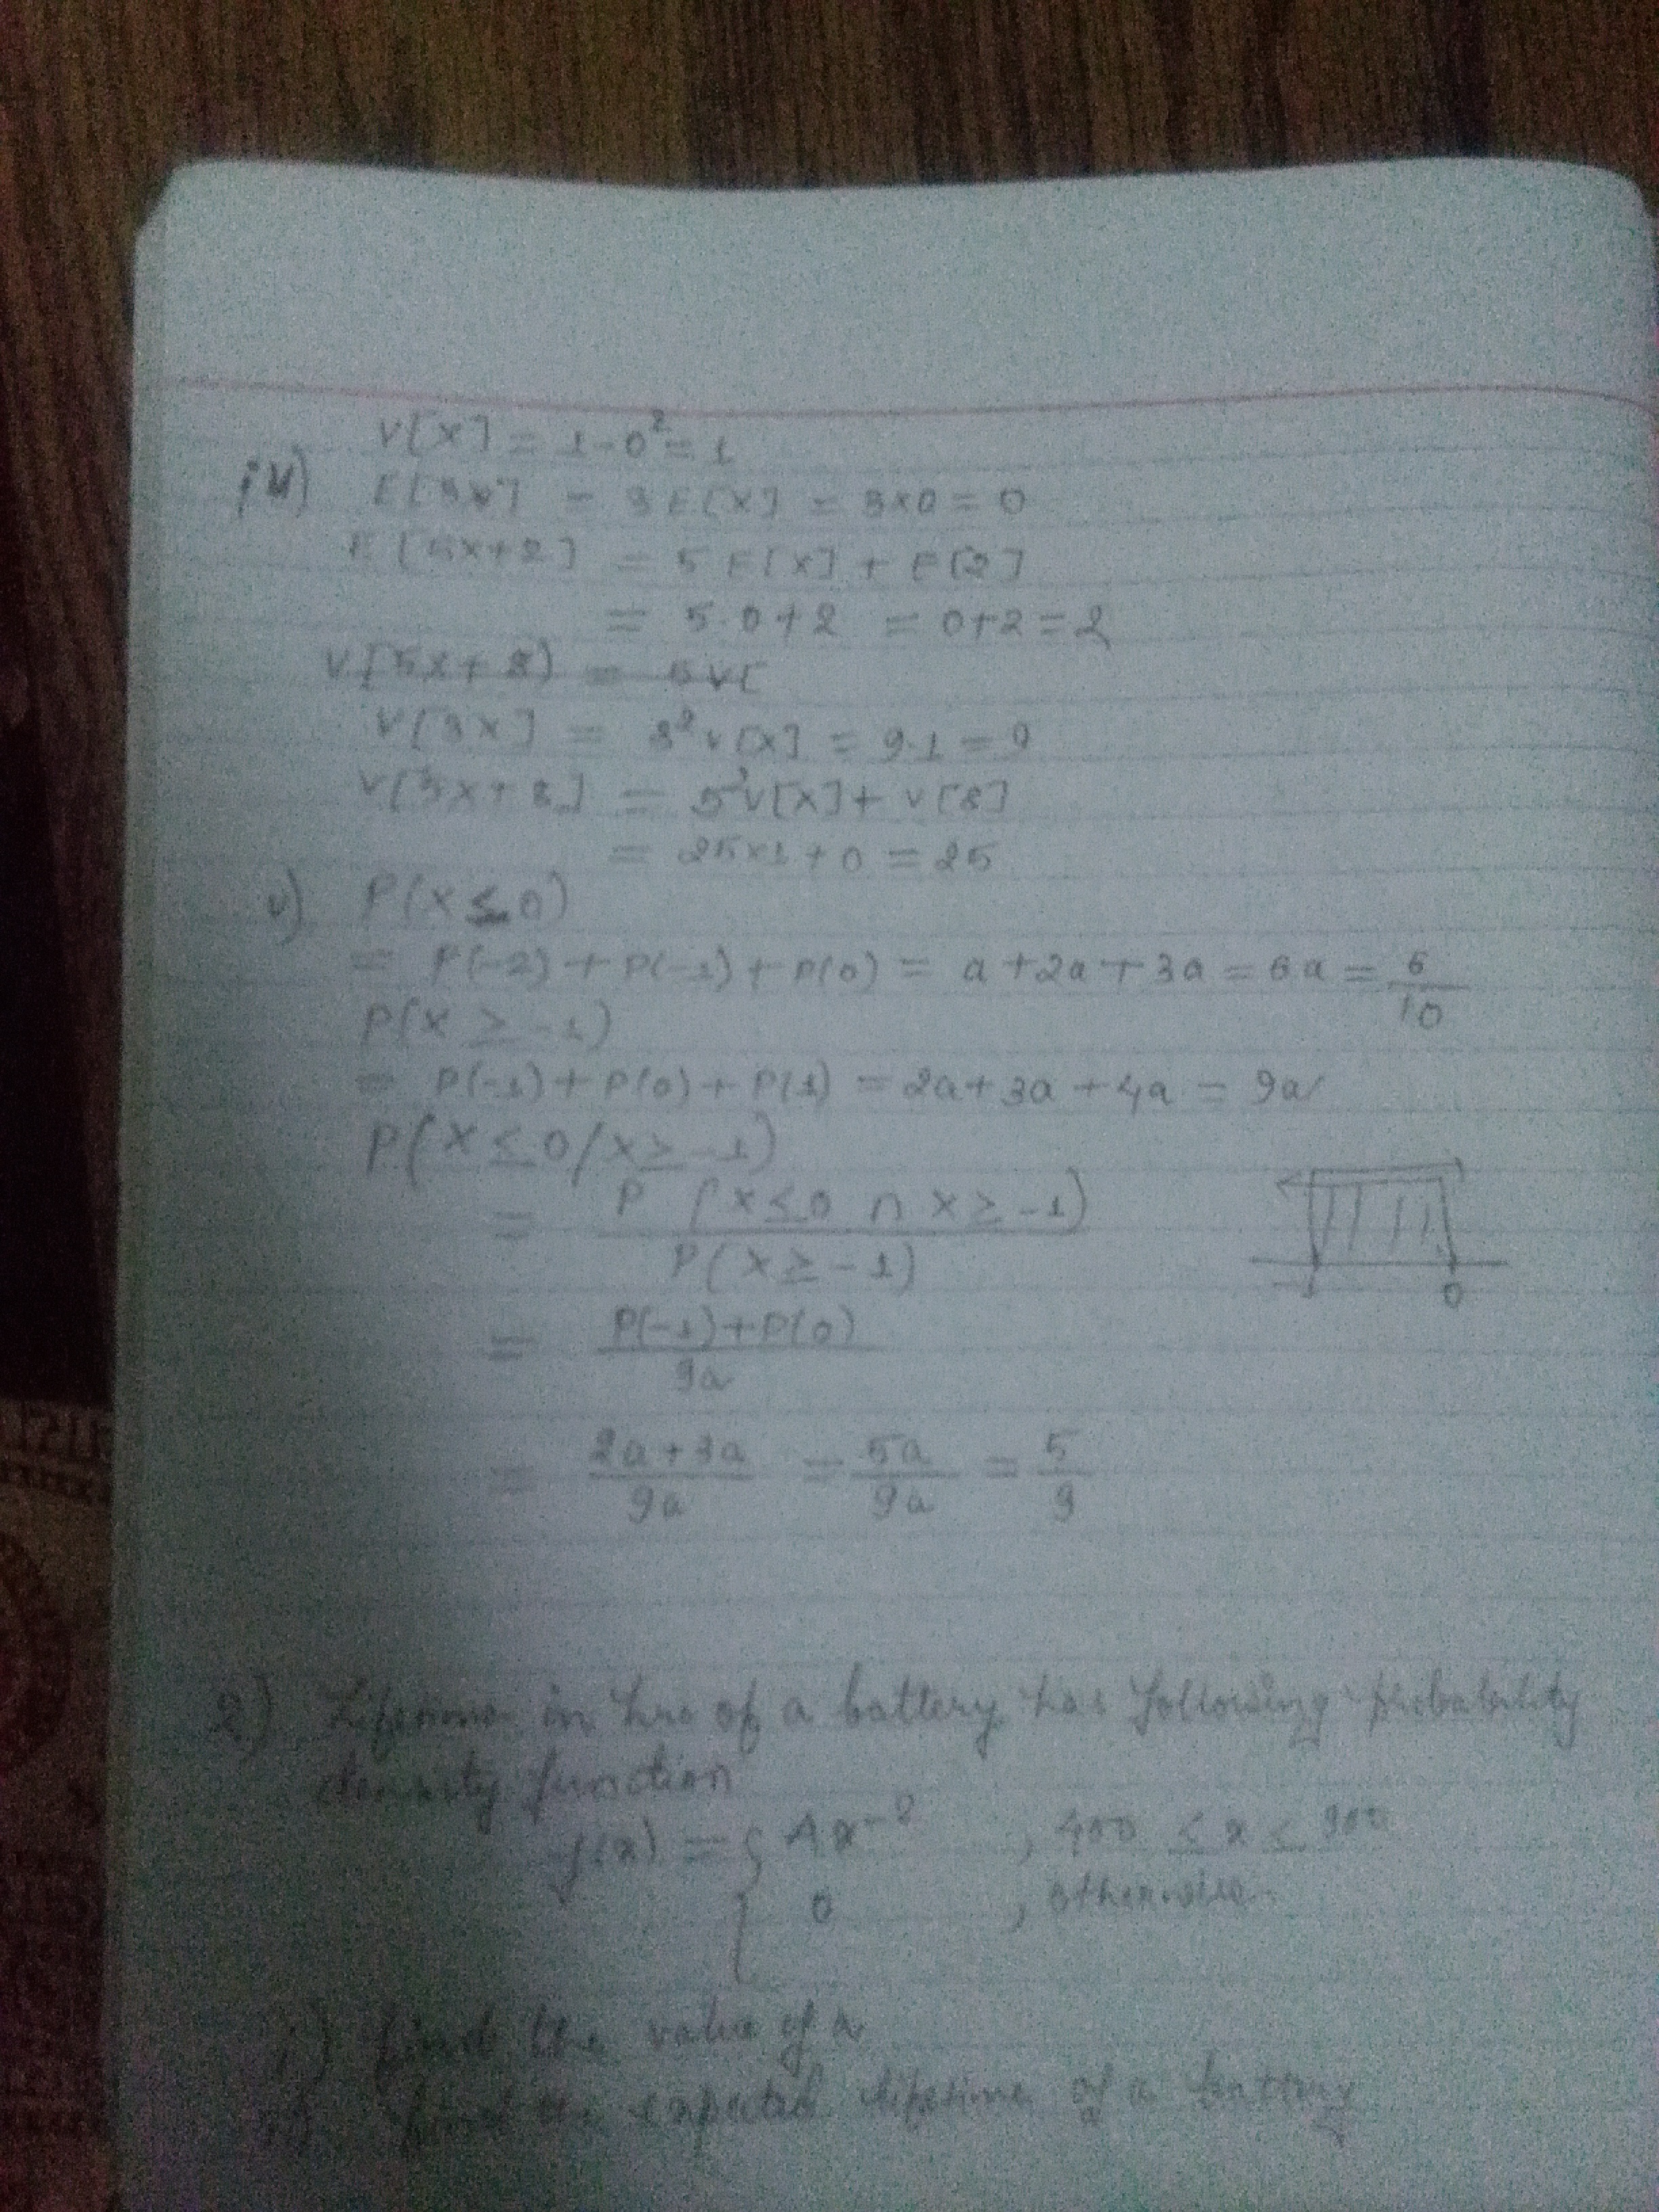 V[X] = 1-0² = 1
iv) E[3X] = 3E[X] = 3×0 = 0
E[5X+2] = 5E[X] + E[2]
= 5.0+2 = 0+2 = 2
V[5X+8) = 5V[
V[3X] = 3²V[X] = 9.1 = 9
V[5X+8] = 5²V[X] + V[8]
= 25×1 + 0 = 25
v) P(X ≤ 0)
= P(-2) + P(-1) + P(0) = a + 2a + 3a = 6a = 6/10
P(X ≥ -1)
= P(-1) + P(0) + P(1) = 2a + 3a + 4a = 9a
P(X ≤ 0 / X ≥ -1)
= P(X ≤ 0 ∩ X ≥ -1) / P(X ≥ -1)
-1 0
= P(-1)+P(0) / 9a
= 2a+3a / 9a = 5a / 9a = 5/9
2) Lifetime in hrs of a battery has following probability
density function
f(x) = { Ax⁻², 400 ≤ x ≤ 900
0, otherwise
i) find the value of a
ii) find the expected lifetime of a battery